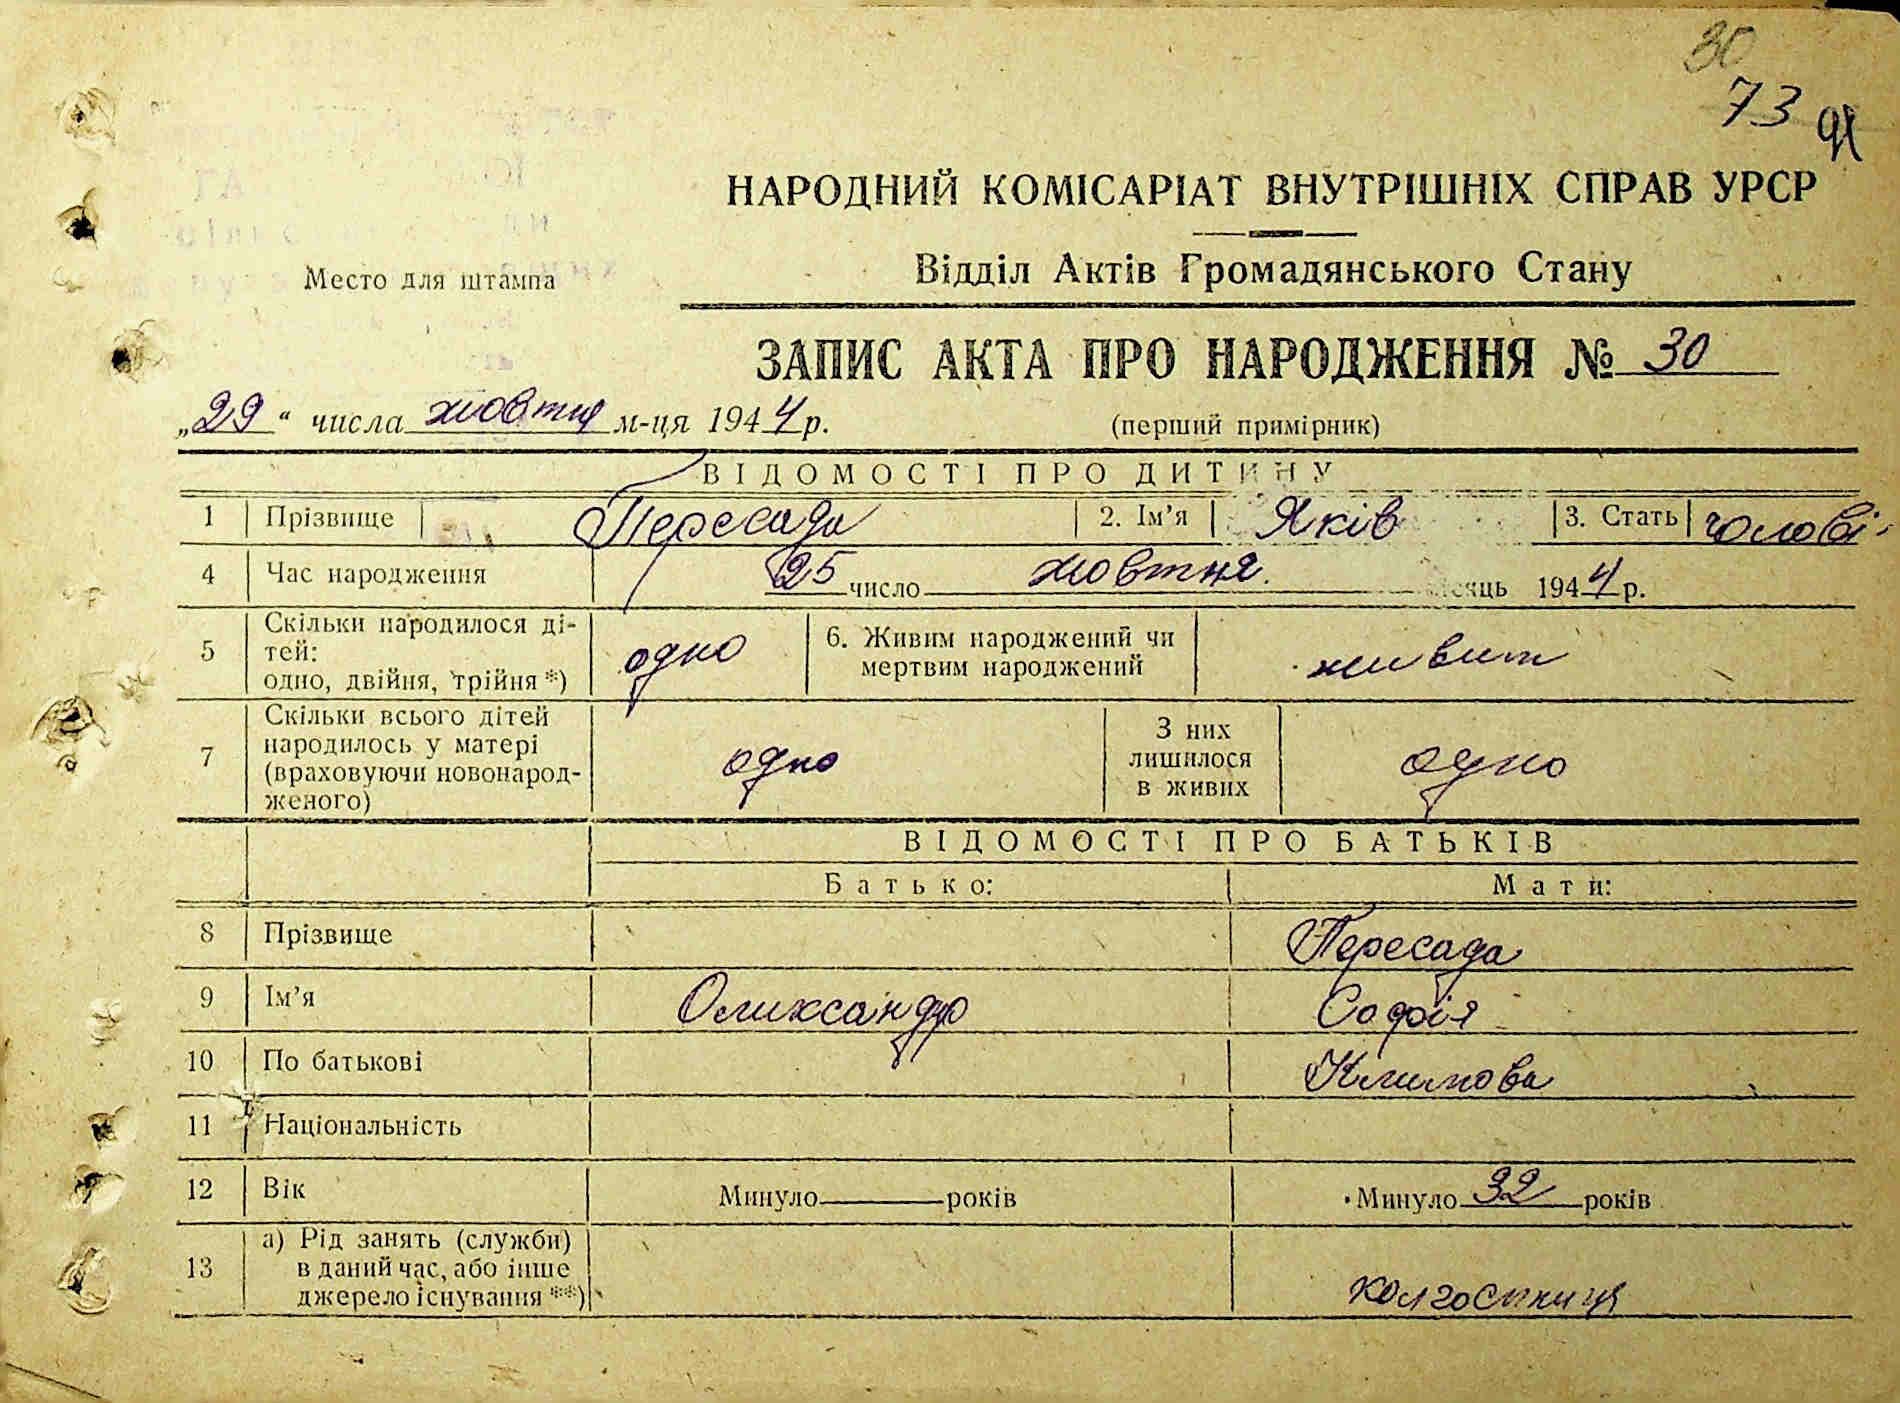 30
73
НАРОДНИЙ КОМІСАРІАТ ВНУТРІШНІХ СПРАВ УРСР
Место для штампа
Відділ Актів Громадянського Стану
ЗАПИС АКТА ПРО НАРОДЖЕННЯ № 30
„29“ числа жовтня м-ця 1944 р.
(перший примірник)
ВІДОМОСТІ ПРО ДИТИНУ
1 Прізвище Пересада 2. Ім’я Яків 3. Стать чолові
4 Час народження 25 число жовтня місяць 1944 р.
5 Скільки народилося ді-
тей:
одно, двійня, трійня *) одно 6. Живим народжений чи
мертвим народжений живим
7 Скільки всього дітей
народилось у матері
(враховуючи новонарод-
женого) одно З них
лишилося
в живих одно
ВІДОМОСТІ ПРО БАТЬКІВ
Батько: Мати:
8 Прізвище Пересада
9 Ім’я Оликсандр Софія
10 По батькові Климова
11 Національність
12 Вік Минуло років Минуло 32 років
13 а) Рід занять (служби)
в даний час, або інше
джерело існування **) колгоспниця